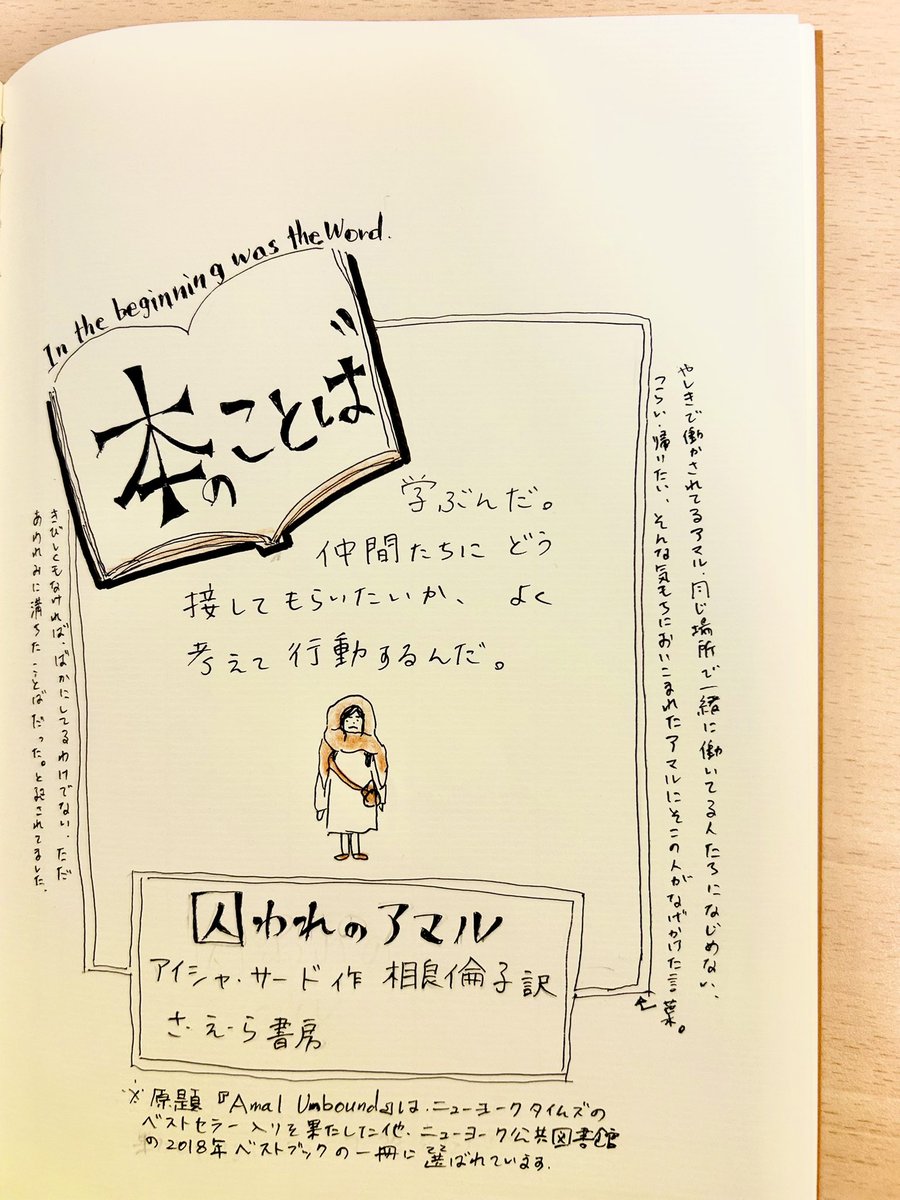 In the beginning was the Word.
本のことば
学ぶんだ。
仲間たちに どう
接してもらいたいか、よく
考えて行動するんだ。
やしきで働かされてるアマル、同じ場所で一緒に働いてる人たちになじめない、
つらい、帰りたい、そんな気もちにおいこまれたアマルにそこの人がなげかけた言葉。
きびしくもなければ、ばかにしてるわけでない、ただ
あわれみに満ちたことばだった。と記されてました。
囚われのアマル
アイシャ・サード 作 相良倫子 訳
さ・え・ら書房
※原題『Amal Unbound』は、ニューヨークタイムズの
ベストセラー入りを果たした他、ニューヨーク公共図書館
の2018年ベストブックの一冊に選ばれています。